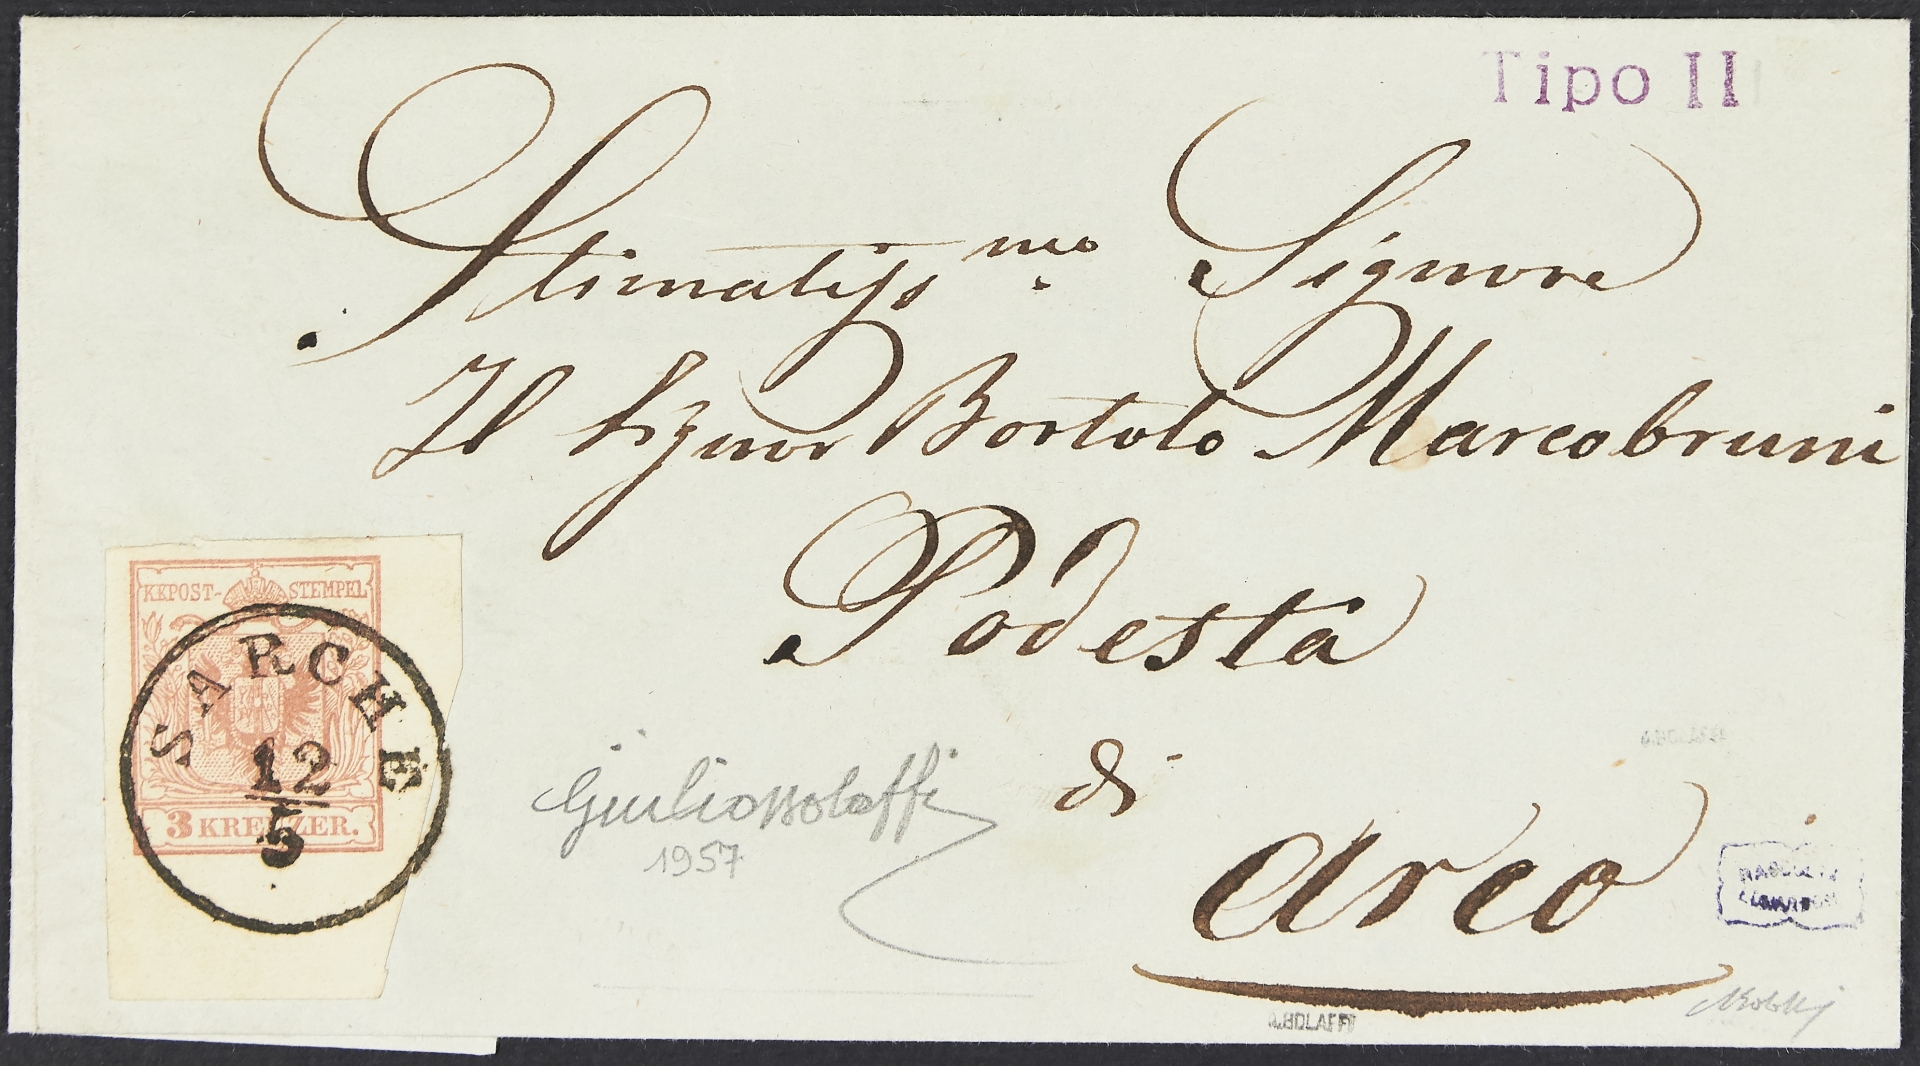 Tipo II
Stimatiss.mo Signore
Il Signor Bortolo Marcobruni
Podestà
di
Arco
KKPOST-STEMPEL
SARCHE
12
5
3 KREUZER.
Giulio Bolaffi
1957
A.BOLAFFI
RACCOLTA
A.BOLAFFI